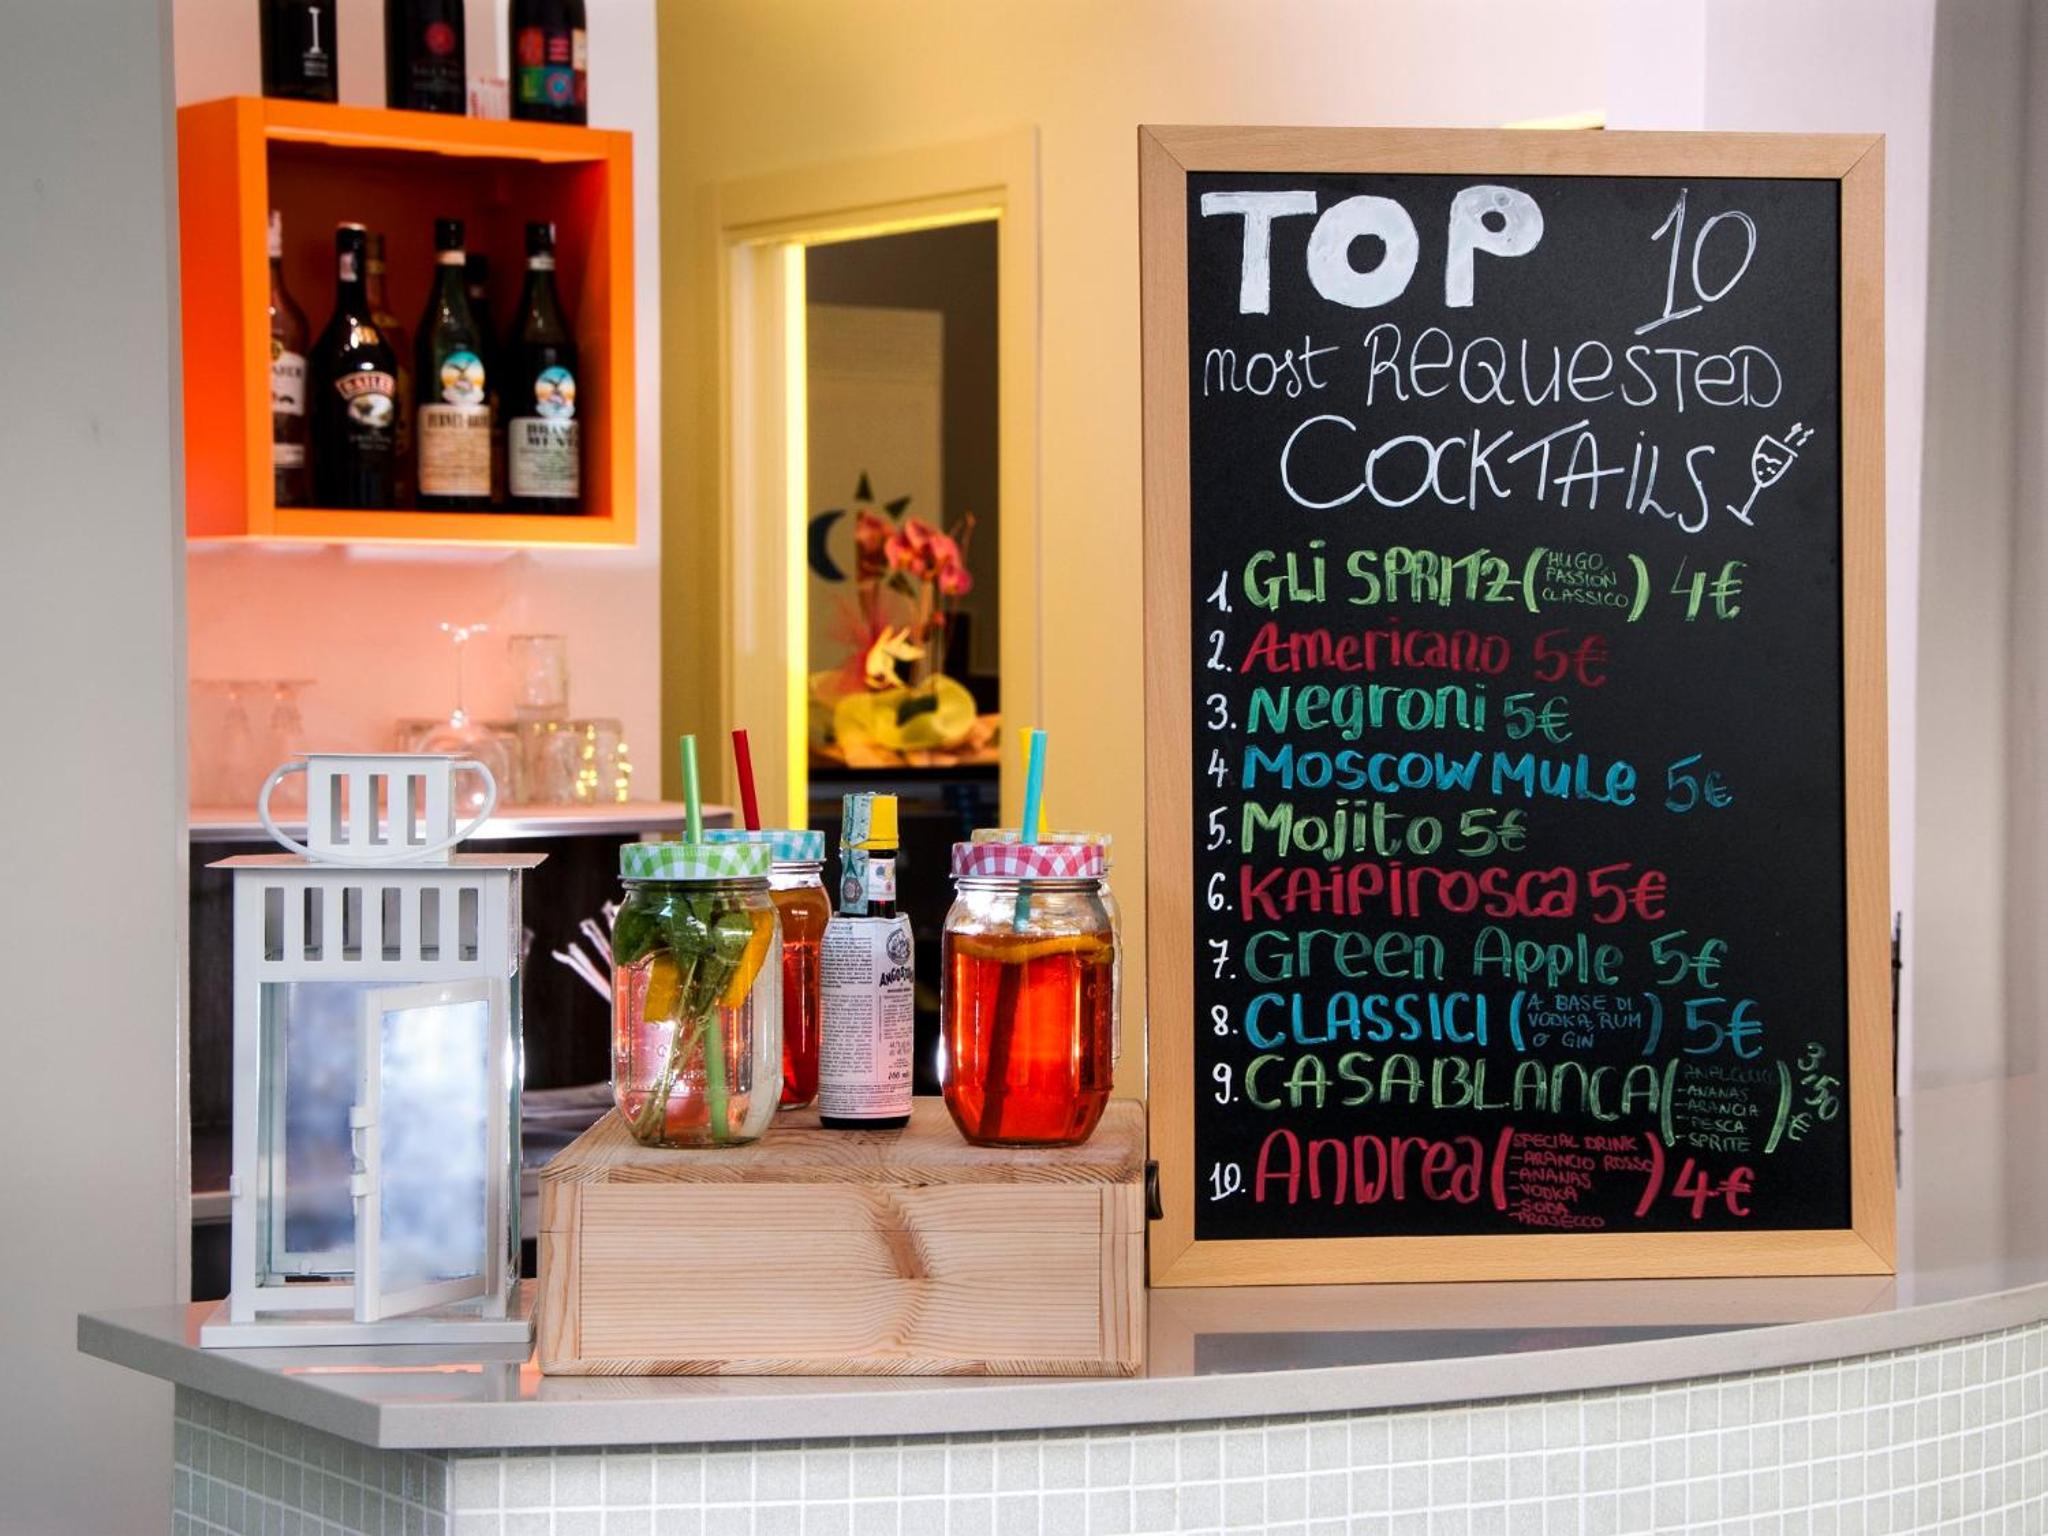 BAILEYS
FERNET-BRANCA
BRANCA
MENTA
TOP 10
most REQUESTED
COCKTAILS
1. GLI SPRITZ (HUGO, PASSION CLASSICO) 4€
2. Americano 5€
3. Negroni 5€
4 MOSCOW MULE 5€
5. Mojito 5€
6. KAIPIROSCA 5€
7. Green Apple 5€
8. CLASSICI (A BASE DI VODKA, RUM O GIN) 5€
9. CASABLANCA (ANALCOLICO -ANANAS -ARANCIA -PESCA -SPRITE) 3,50 €
10. AnDrea (SPECIAL DRINK -ARANCIO ROSSO -ANANAS -VODKA -SODA -PROSECCO) 4€
ANGOSTURA